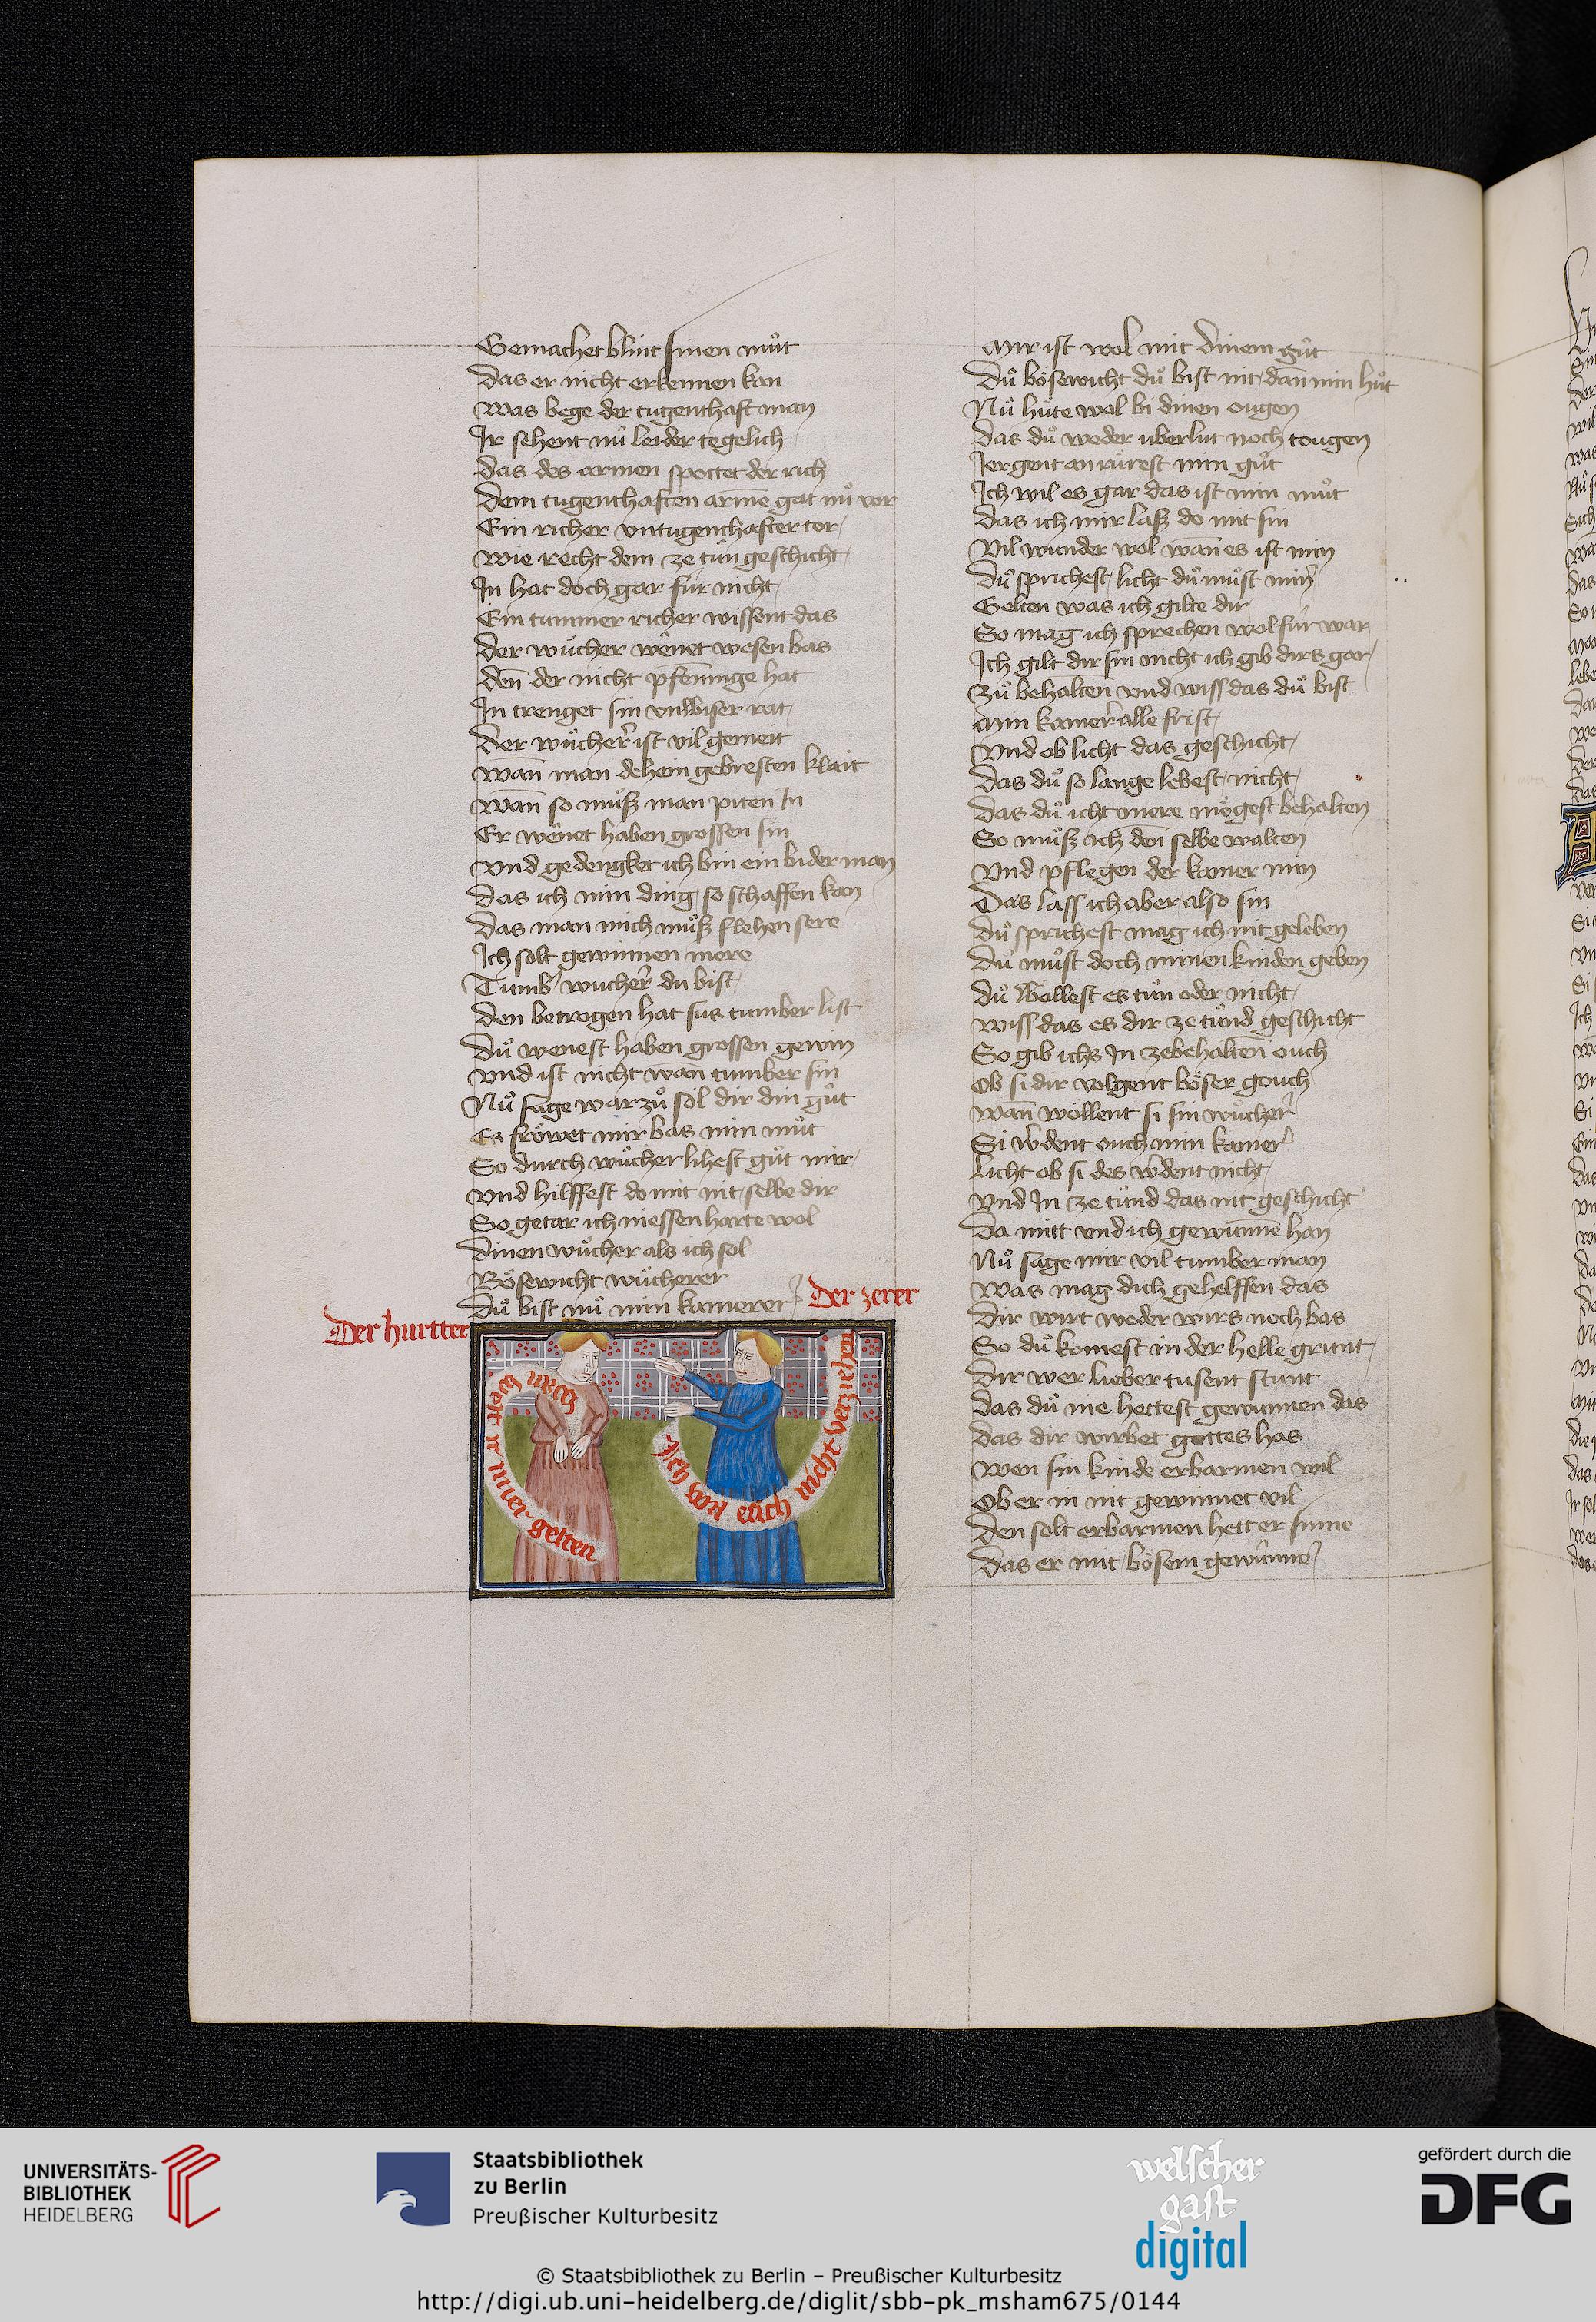 Gemachet blint sinen můt
Das er nicht erkennen kan
Was bege der tugenthaft man
Ir sehent nů leider tegelich
Das des armen spottet der rich
Dem tugenthaften armē gat nů vor
Ein richer vntugenthafter tor
Wie recht dem ze tůn geschicht
In hat doch gar für nicht
Ein tummer richer wissent das
Der wůcher wênet wesen bas
Deñ der nicht pfēnnige hat
In trenget sin vnwiser rat
Der wůcher̉ ist vil gemeit
Wañ man dehein gebresten klait
Wañ so můß man piten In
Er wênet haben grossen sin
Vnd gedengket ich bin ein bider man
Das ich min ding so schaffen kan
Das man mich můß flehen sere
Ich solt gewinnen mere
Tumb̉ wucher̉ du bist
Den betrogen hat sus tumber list
Dů wenest haben grossen gewin
Vnd ist nicht wañ tumber sin
Nů sage war zů sol dir din gůt
Es fröwet mir bas min můt
So durch wůcher lihest gůt mir
Vnd hilffest do mit nit selbe dir
So getar ich niessen harte wol
Dinen wůcher als ich sol
Bösewicht wůcherer
Dů bist nů min kamerer
Der zerer
Der hurtter
wan
welt ir mier gelten
Ich wil euch nicht verziehen
Mir ist wol mit dinem gůt
Dů bösewicht dů bist nit dañ min hůt
Nů hůte wol bi dinen ougen
Das dů weder uberlut noch tougen
Iergent anrürest min gůt
Ich wil es gar das ist min můt
Das ich mir laß do mit sin
Vil wunder wol wañ es ist min
Dů sprichest licht dů můst min̉
Gelten was ich gilte dir
So mag ich sprechen wol für war
Ich gilt dir sin nicht ich gib dirs gar
Zů behalten vnd wiss das dů bist
Min kamer̉ alle frist
Vnd ob licht das geschicht
Das dů so lange lebest nicht
Das dů icht mere mögest behalten
So můß ich deñ selbe walten
Vnd pflegen der kamer min
Das lass ich aber also sin
Dů sprichest mag ich nit geleben
Dů můst doch minen kinden geben
Dů wöllest es tůn oder nicht
Wiss das es dir ze tůnd geschicht
So gib ichs In zebehalteñ ouch
Ob si dir volgent böser gouch
Wañ wöllent si sin wůcher̉
Si w̉dent ouch min kamer̉
Licht ob si des w̉dent nicht
Vnd In ze tůnd das nit geschicht
Da mitt vnd ich gewunne han
Nů sage mir vil tumber man
Was mag dich gehelffen das
Dir wirt weder wirs noch bas
So dů komest in der helle grunt
Dir wer lieber tusent stunt
Das dů nie hettest gewunnen das
Das dir wirbet gottes has
Wen sin kinde erbarmen wil
Ob er in nit gewinnet vil
Den solt erbarmen hett er sinne
Das er mit bösem gewinne
UNIVERSITÄTS-
BIBLIOTHEK
HEIDELBERG
Staatsbibliothek
zu Berlin
Preußischer Kulturbesitz
welscher
gast
digital
gefördert durch die
DFG
© Staatsbibliothek zu Berlin – Preußischer Kulturbesitz
http://digi.ub.uni-heidelberg.de/diglit/sbb-pk_msham675/0144